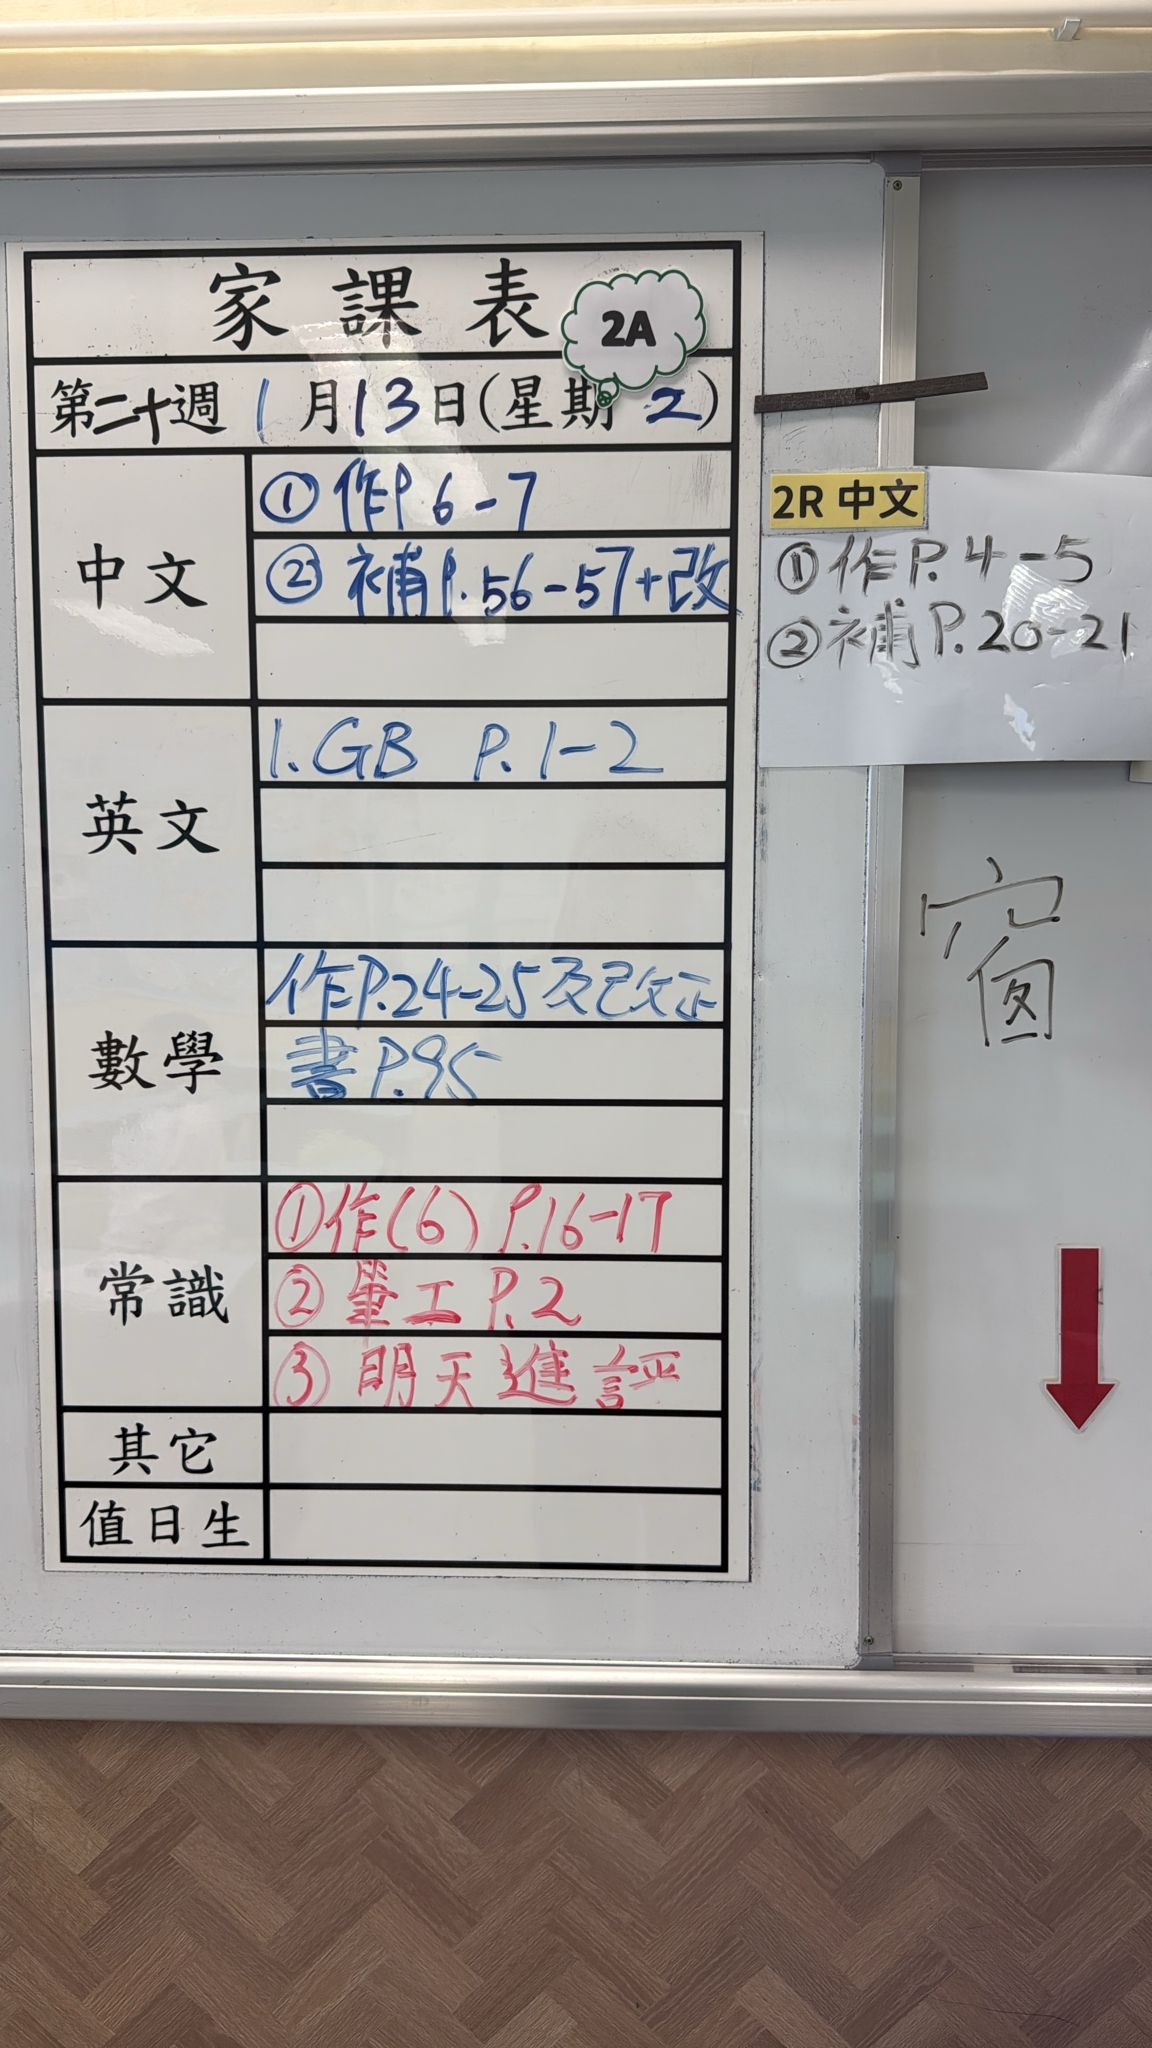 家課表
2A
第二十週 1月13日(星期2)
中文
①作P.6-7
②補P.56-57+改
英文
1.GB P.1-2
數學
作P.24-25及改正
書P.95
常識
①作(6) P.16-17
②筆工P.2
③明天進評
其它
值日生
2R 中文
①作P.4-5
②補P.20-21
窗